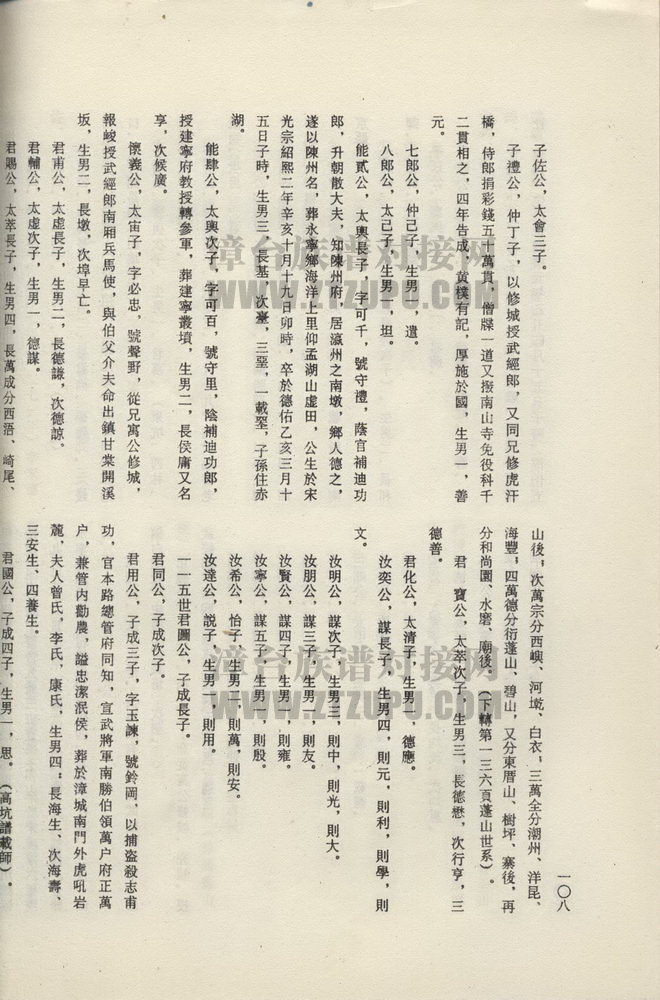 一〇八
子佐公，太會三子。
子禮公，仲丁子，以修城授武經郎，又同兄修虎汙
橋，侍郎捐彩錢五十萬貫，僧牒一道又撥南山寺免役科千
二貫相之，四年告成，黃樸有記，厚施於國，生男一，善
元。
七郎公，仲己子，生男一，遣。
八郎公，太己子，生男一，坦。
能貳公，太輿長子，字可千，號守禮，蔭官補迪功
郎，升朝散大夫，知陳州府，居瀛州之南墩，鄉人德之，
遂以陳州名，葬永寧鄉海洋上里仰孟湖山虛田，公生於宋
光宗紹熙二年辛亥十月十九日卯時，卒於德佑乙亥三月十
五日子時，生男三，長基，次臺，三堊，一載堊，子孫住赤
湖。
能肆公，太輿次子，字可百，號守里，陰補迪功郎，
授建寧府教授轉參軍，葬建寧叢墳，生男二，長侯庸又名
享，次候廣。
懷義公，太宙子，字必忠，號聲野，從兄寓公修城，
報峻授武經郎南厢兵馬使，與伯父介夫命出鎮甘棠開溪
坂，生男二，長墩，次埠早亡。
君甫公，太虛長子，生男二，長德謙，次德諒。
君輔公，太虛次子，生男一，德謀。
君賜公，太萃長子，生男四，長萬成分西浯、崎尾、
山後，次萬宗分西嶼、河墘、白衣，三萬全分潮州、洋昆、
海豐，四萬德分衍蓬山、碧山，又分東厝山、樹坪、寨後，再
分和尚園、水磨、廟後，（下轉第一三六頁蓬山世系）。
君寶公，太萃次子，生男三，長德懋，次行亨，三
德善。
君化公，太清子，生男一，德應。
汝奕公，謀長子，生男四，則元，則利，則學，則
文。
汝明公，謀次子，生男三，則中，則光，則大。
汝朋公，謀三子，生男一，則友。
汝賢公，謀四子，生男一，則雍。
汝寧公，謀五子，生男一，則殷。
汝希公，怡子，生男二，則萬，則安。
汝達公，說子，生男一，則用。
一一五世君圖公，子成長子。
君同公，子成次子。
君用公，子成三子，字玉諫，號鈴岡，以捕盜殺志甫
功，官本路總管府同知，宣武將軍南勝伯領萬户府正萬
户，兼管内勸農，謚忠潔泯侯，葬於漳城南門外虎吼岩
麓，夫人曾氏，李氏，康氏，生男四：長海生、次海壽、
三安生、四養生。
君國公，子成四子，生男一，思。（高坑譜載師）。
漳台族谱对接网
WWW.ZTZUPU.COM
漳台族谱对接网
WWW.ZTZUPU.COM